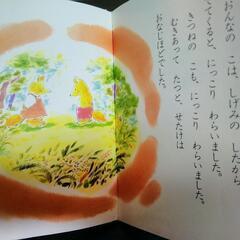 おんなの こは、しげみの したから
てくると、にっこり わらいました。
きつねの こも、にっこり わらいました。
むきあって たつと、せたけは
おなじほどでした。